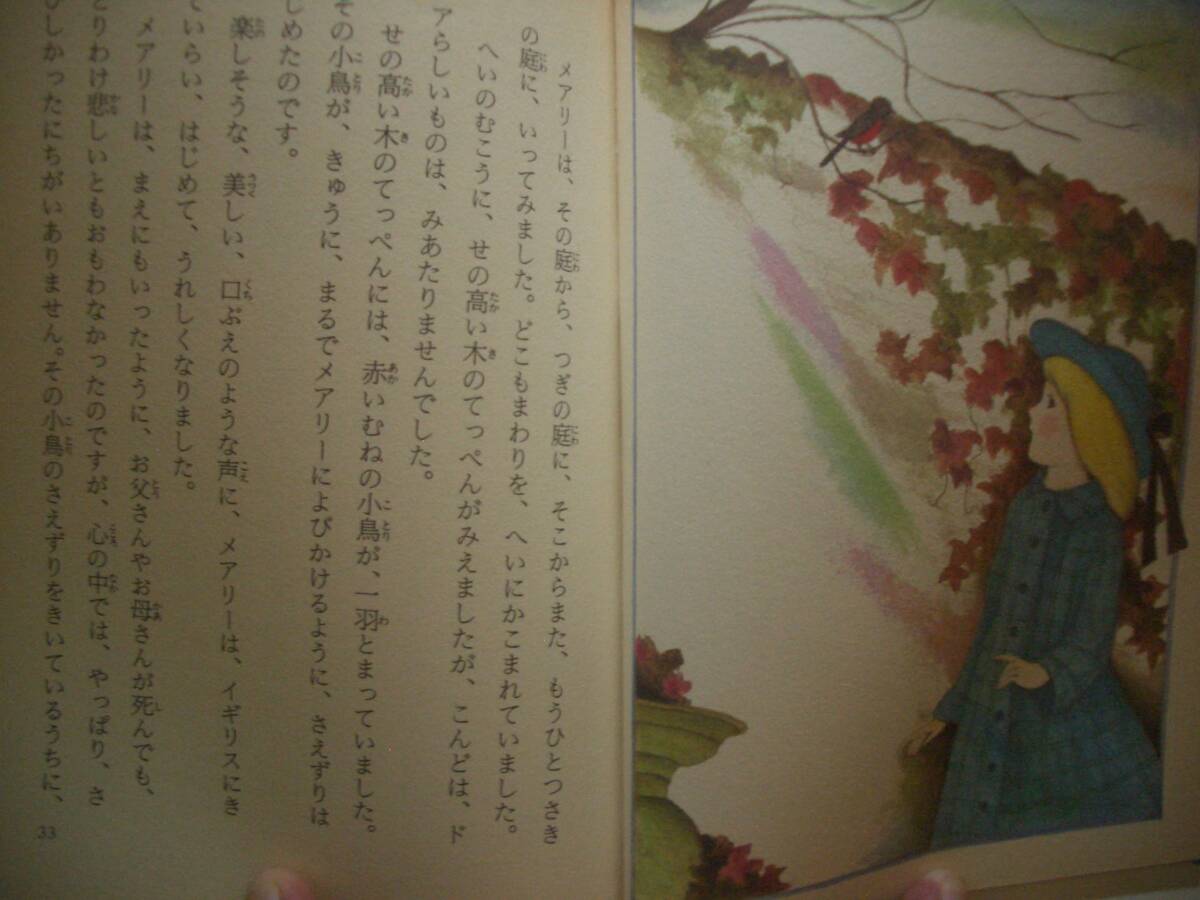 メアリーは、その庭から、つぎの庭に、そこからまた、もうひとつさき
の庭に、いってみました。どこもまわりを、へいにかこまれていました。
へいのむこうに、せの高い木のてっぺんがみえましたが、こんどは、ド
アらしいものは、みあたりませんでした。
せの高い木のてっぺんには、赤いむねの小鳥が、一羽とまっていました。
その小鳥が、きゅうに、まるでメアリーによびかけるように、さえずりは
じめたのです。
楽しそうな、美しい、口ぶえのような声に、メアリーは、イギリスにき
ていらい、はじめて、うれしくなりました。
メアリーは、まえにもいったように、お父さんやお母さんが死んでも、
とりわけ悲しいともおもわなかったのですが、心の中では、やっぱり、さ
びしかったにちがいありません。その小鳥のさえずりをきいているうちに、
33